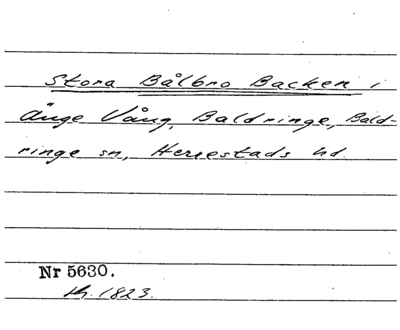 Stora Bålbro Backen i
Änge Vång, Baldringe, Bald-
ringe sn, Herrestads hd.
Nr 5630.
1823.